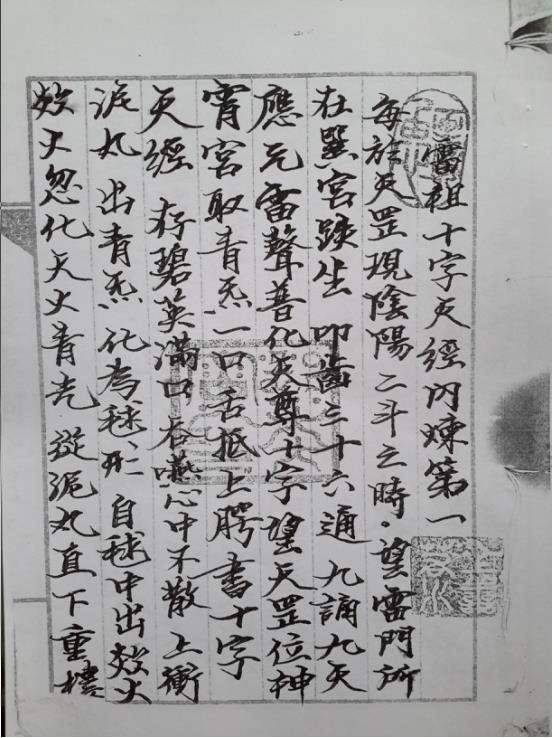 雷祖十字天經內煉第一
每於天罡現陰陽二斗之時。望雷門所
在巽宮趺坐 叩齒三十六通 九誦九天
應元雷聲普化天尊十字望天罡位神
霄宮取青炁一口舌抵上腭 書十字
天經 存碧英滿口 吞嚥心中不散 上衝
泥丸 出青炁 化為毬形 自毬中出火
火忽化天火青光 從泥丸直下重樓